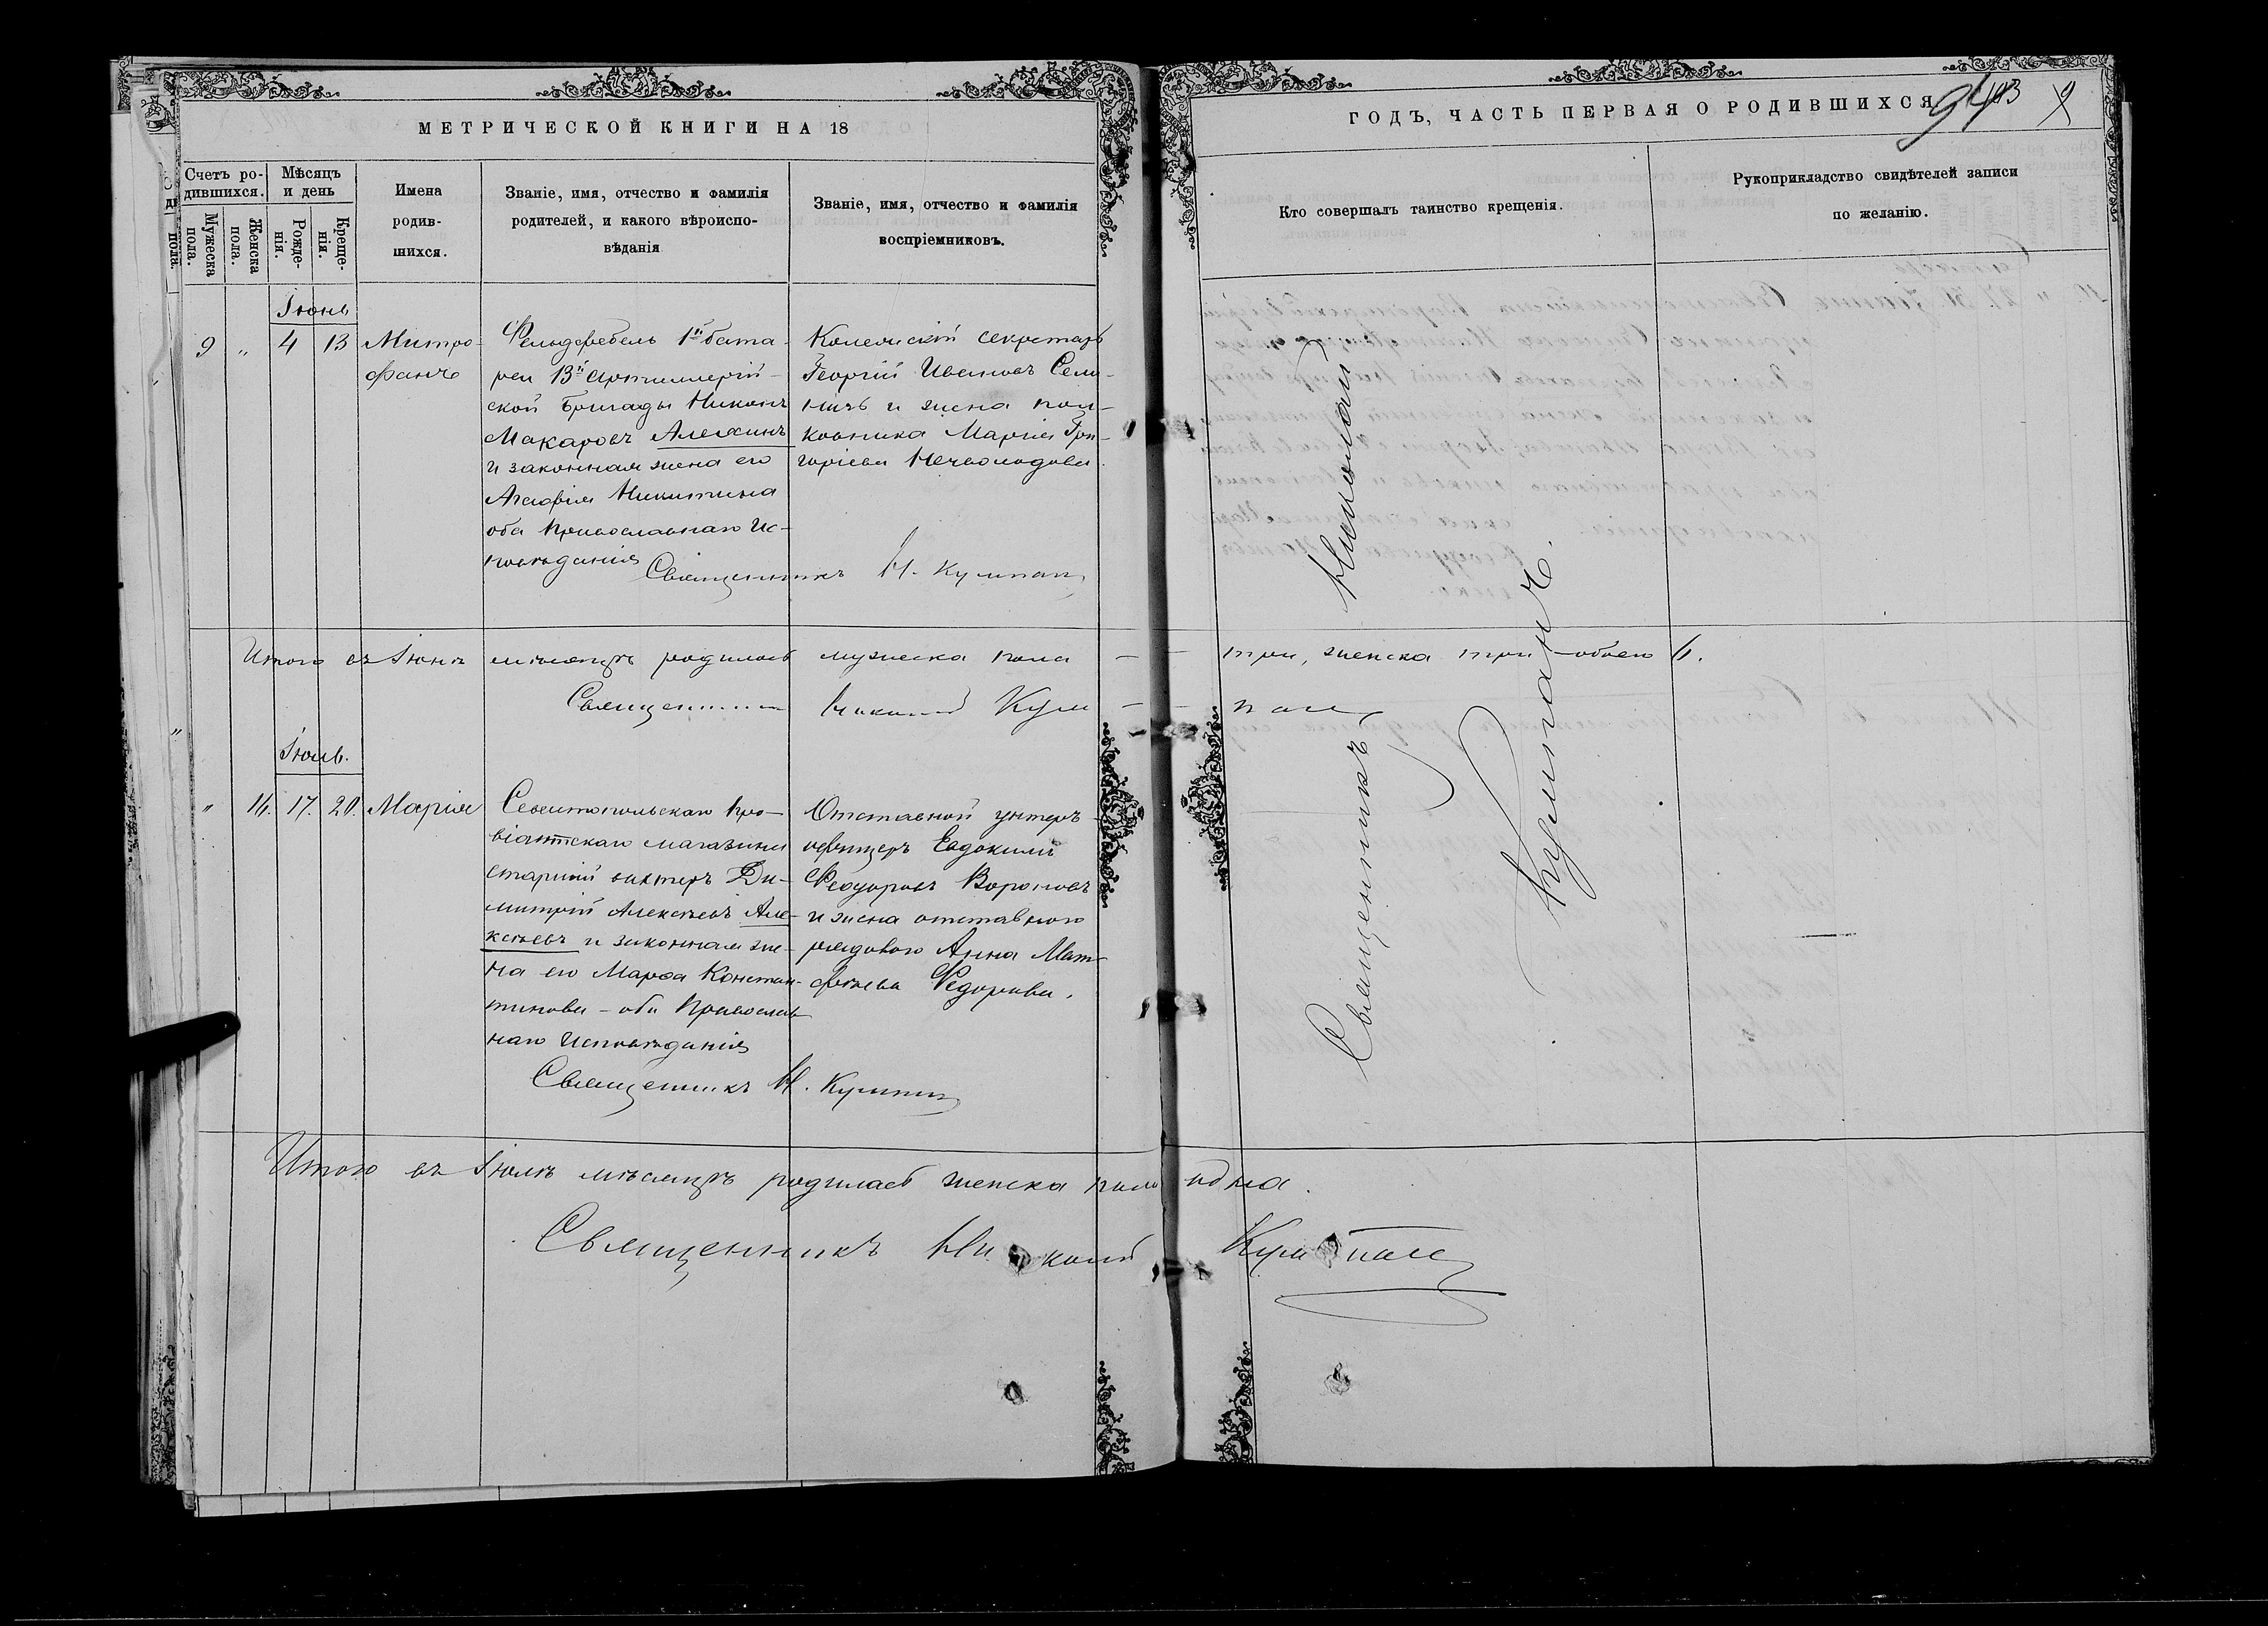 МЕТРИЧЕСКОЙ КНИГИ НА 18
ГОДЪ, ЧАСТЬ ПЕРВАЯ О РОДИВШИХСЯ
Счетъ ро-
дившихся.
Мужеска
пола.
Женска
пола.
Мѣсяцъ
и день
Рожде-
нія.
Креще-
нія.
Имена
родив-
шихся.
Званіе, имя, отчество и фамилія
родителей, и какого вѣроиспо-
вѣданія
Званіе, имя, отчество и фамилія
воспріемниковъ.
Кто совершалъ таинство крещенія.
Рукоприкладство свидѣтелей записи
по желанію.
Іюнь
9 " 4 13
Митро-
фанъ
Фельдфебель 1й бата-
реи 13й Артиллерій-
ской Бригады Никонъ
Макаровъ Алехинъ
и законная жена его
Агафія Никитина
оба Православнаго Ис-
повѣданія
Колежскій секретарь
Георгій Ивановъ
и жена пол-
ковника Марія Гри-
горіева Нечволодова.
Священникъ Н. Кулпан
Итого въ Іюнѣ мѣсяцѣ родилось мужеска пола — — три, женска три — обоего 6.
Священникъ Николай Кул — — пан
Іюль.
" 16. 17. 20. Марія
Севастопольскаго Про-
віантскаго магазина
старшій вахтеръ Ди-
митрій Алексѣевъ Але-
ксѣевъ и законная же-
на его Марѳа Констан-
тинова - оба Православ-
наго Исповѣданія
Отставной унтеръ-
офицеръ Евдокимъ
Феодоровъ Вороновъ
и жена отставного
рядового Анна Мат-
фѣева Федорова.
Священникъ Н. Кулпан
Священникъ Николай
Кулпанъ.
Итого въ Іюлѣ мѣсяцѣ родилась женска пола одна.
Священникъ Николай Кулпан